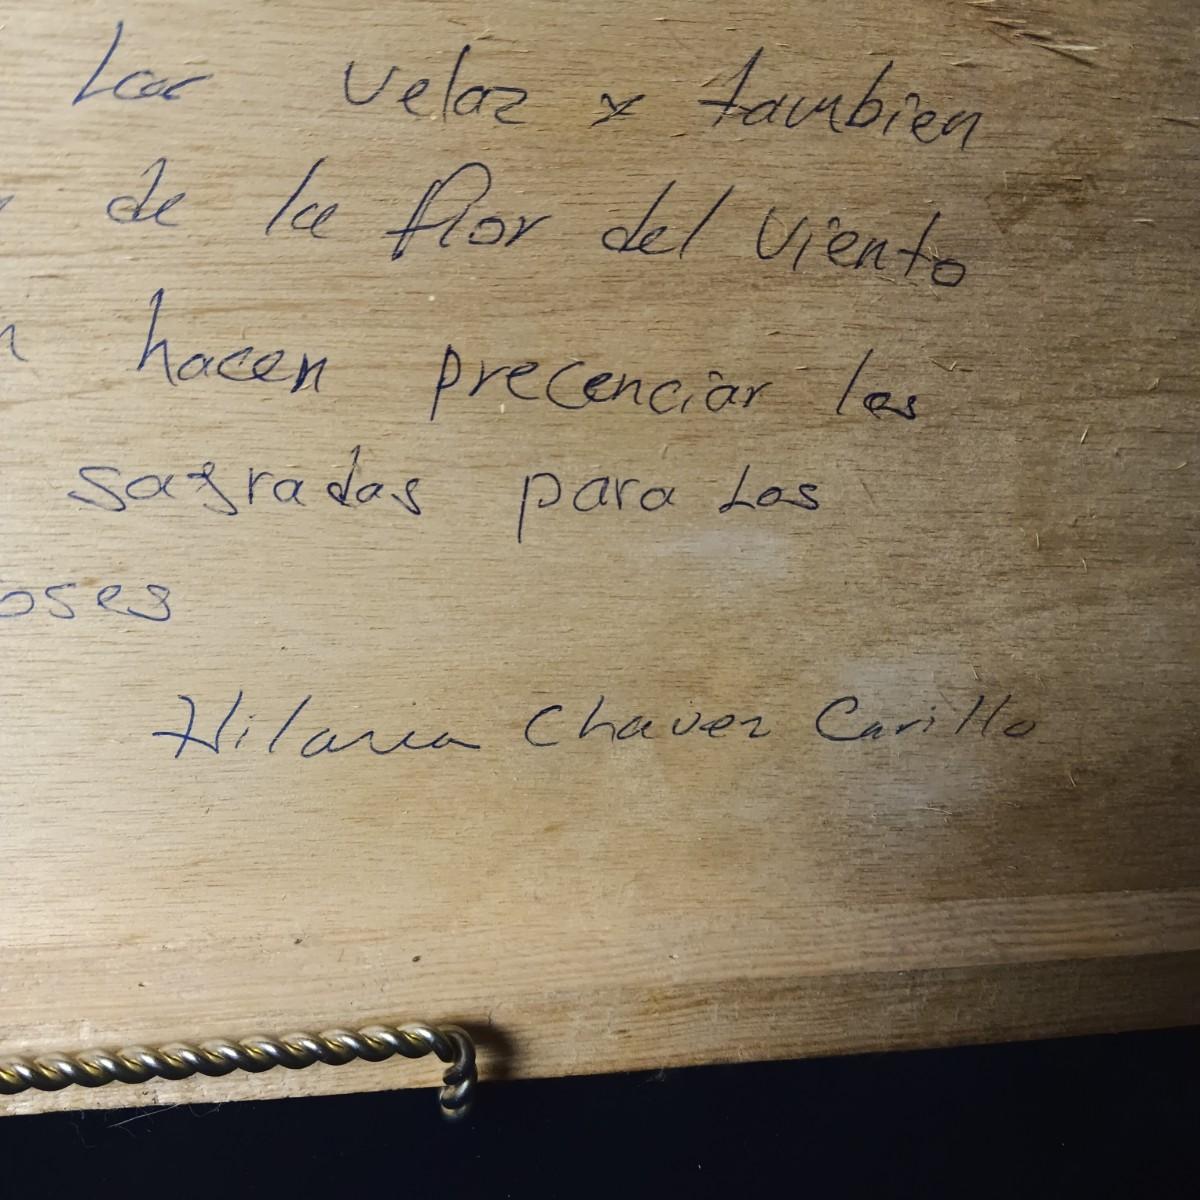 Las velaz y tambien
de la flor del viento
n hacen precenciar las
sagradas para Los
oses
Hilaria Chavez Carillo